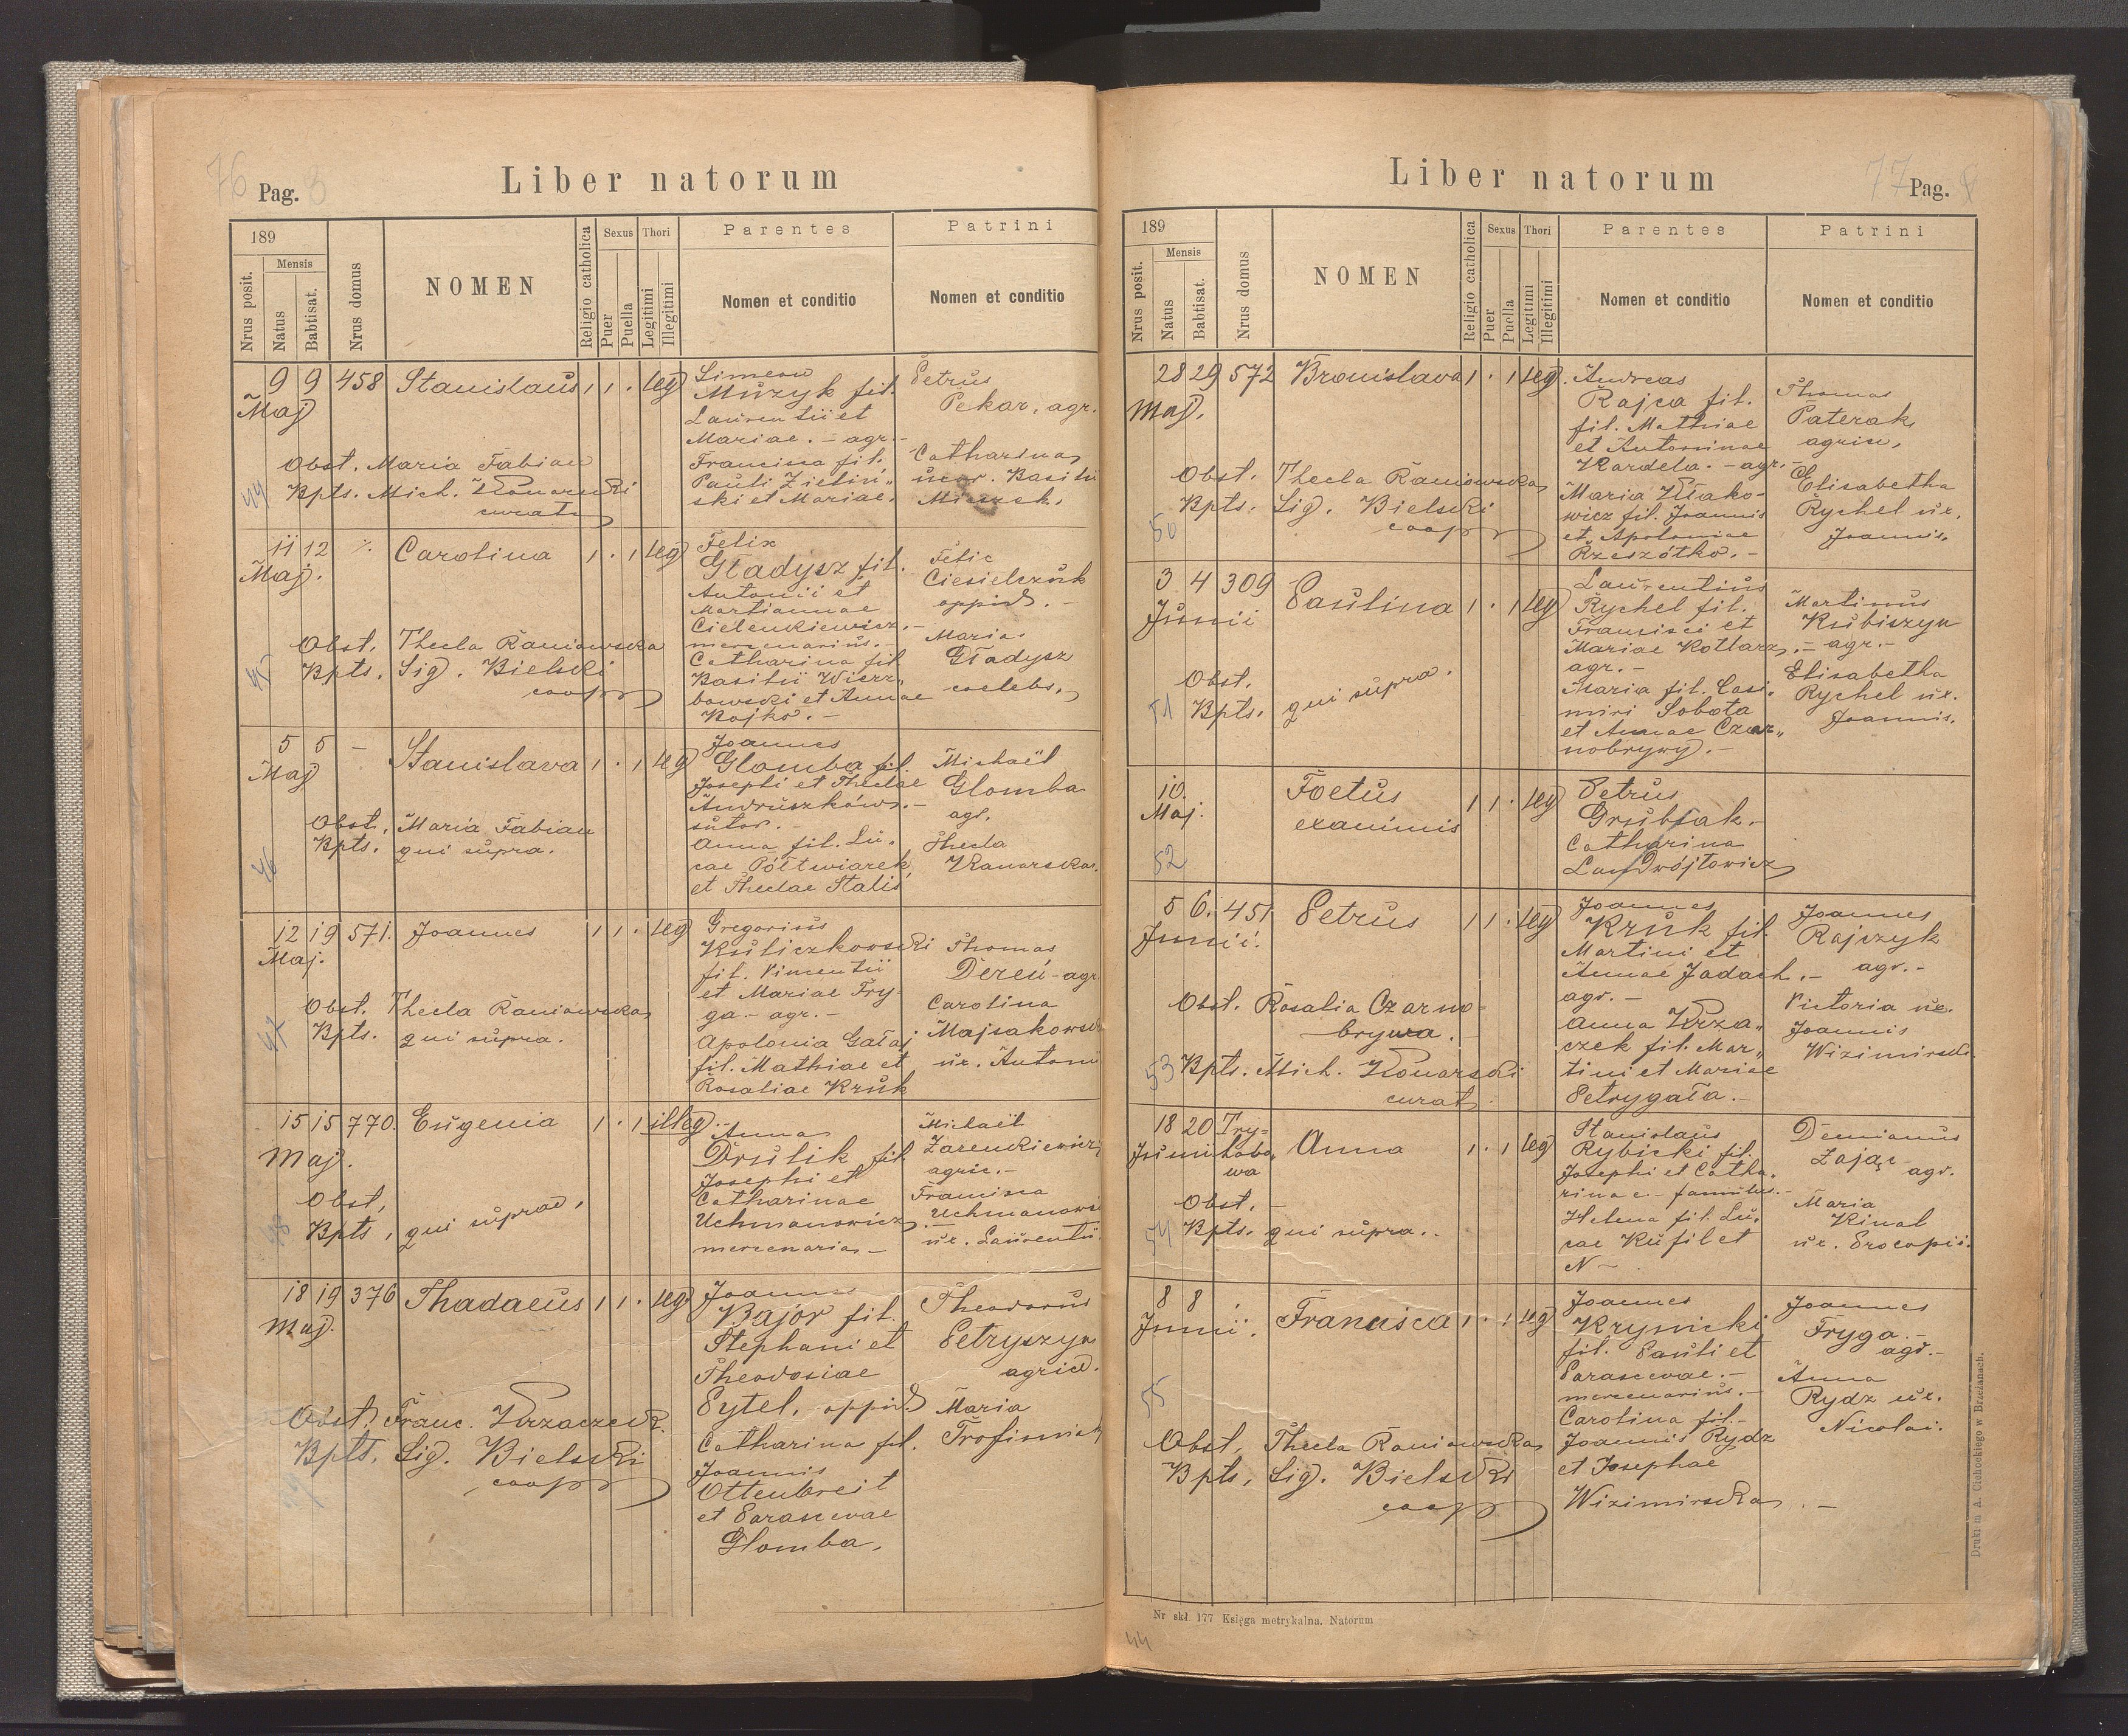 76 Pag.
Liber natorum
189
Nrus posit.
Mensis
Natus
Babtisat.
Nrus domus
NOMEN
Religio catholica
Sexus
Puer
Puella
Thori
Legitimi
Illegitimi
Parentes
Nomen et conditio
Patrini
Nomen et conditio
9 9 458 Stanislaus 1 1 . leg
Maj
Obst. Maria Fabian
44 Bpts. Mich. Konarski
curat
Simeon
Muzyk fil.
Laurentii et
Mariae. - agr. -
Francisca fil.
Pauli Zieliń„
ski et Mariae.
Petrus
Pekar, agr.
Catharina
uxor. Basilii
11 12 Carolina 1 . 1 leg
Maj.
Obst. Thecla Raniowska
45 Bpts. Sig. Bielski
coop
Felix
Gładysz fil.
Antonii et
Martiannae
Cielenkiewicz. -
mercenarius. -
Catharina fil.
Basilii Wierz„
bowski et Annae
Kojko. -
Felic
Ciesielczuk
oppid. -
Maria
Gładysz
caelebs.
5 5 - Stanislava 1 . 1 leg
Maj
Obst. Maria Fabian
Bpts. qui supra.
46
Joannes
Glomba fil.
Josephi et Theclae
Andruszków. -
sutor. -
Anna fil. Lu„
cae Półtwiarek
et Theclae Stalis
Michaël
Glomba
agr.
Thecla
Kanarska.
12 19 571. Joannes 1 1 . leg
Maj.
Obst. Thecla Raniowska
47 Bpts. qui supra.
Gregorius
Kuliczkowski
fil. Vincentii
et Mariae Fry-
ga. - agr. -
Apolonia Gałaj
fil. Mathiae et
Rosaliae Kruk
Thomas
Dereń - agr
Carolina
Majsakowsk
ux. Antoni
15 15 770. Eugenia 1 . 1 illeg.
Maj.
Obst.
48 Bpts. qui supra.
Anna
Drulik fil.
Josephi et
Catharinae
Uchmanowicz
mercenaria -
Michaël
Zarenkiewicz
agric. -
Francisca
Uchmanowi
ux. Laurentii.
18 19 376 Thadaeus 1 1 . leg
Maj.
Obst. Franc. Krzaczek.
Bpts. Sig. Bielski
49 coop
Joannes
Bajor fil.
Stephani et
Theodosiae
Pytel, oppid
Catharina fil.
Joannis
Ottenbreit
et Parascevae
Glomba.
Theodorus
Petryszyn
agric.
Maria
Trofimiak
Liber natorum
77 Pag.
189
Nrus posit.
Mensis
Natus
Babtisat.
Nrus domus
NOMEN
Religio catholica
Sexus
Puer
Puella
Thori
Legitimi
Illegitimi
Parentes
Nomen et conditio
Patrini
Nomen et conditio
28 29 572 Bronislava 1 . 1 leg.
Maj.
Obst. Thecla Raniowska
50 Bpts. Sig. Bielski
coop
Andreas
Rajca fil.
fil. Mathiae
et Antoninae
Kardela. - agr. -
Maria Kłako-
wicz fil. Joannis
et Apoloniae
Rzeszótko. -
Thomas
Paterak
agric.
Elisabetha
Rychel ux.
Joannis.
3 4 309 Paulina 1 . 1 leg
Junii
Obst.
51 Bpts. qui supra.
Laurentius
Rychel fil.
Francisci et
Mariae Kotlarz. -
agr. -
Maria fil. Casi„
miri Sobota
et Annae Czar„
nobrywy. -
Martinus
Kubiszyn
agr. -
Elisabetha
Rychel ux.
Joannis.
10. Foetus 1 1 . leg
Maj. exanimis
52
Petrus
Grubiak. -
Catharina
Landwójtowicz
5 6. 451 Petrus 1 1 . leg
Junii.
Obst. Rosalia Czarno-
brywa. -
53 Bpts. Mich. Konarski
curat.
Joannes
Kruk fil.
Martini et
Annae Jadach. -
agr. -
Anna Krza„
czek fil. Mar„
tini et Mariae
Petrygała. -
Joannes
Rajczyk
agr. -
Victoria ux.
Joannis
Wizimirski.
18 20 Try-
Junii habo„ Anna 1 . 1 leg
wa
Obst. -
54 Bpts. qui supra. -
Stanislaus
Rybicki fil.
Josephi et Catha„
rinae - famulus. -
Helena fil. Lu„
cae Kufil et
N -
Demianus
Zając
agr.
Maria
Kinal
ux. Procopii.
8 8 . Francisca 1 . 1 leg
Junii.
55
Obst. Thecla Raniowska
Bpts. Sig. Bielski
coop
Joannes
Krynicki
fil. Pauli et
Parascevae. -
mercenarius. -
Carolina fil. -
Joannis Rydz
et Josephae
Wizimirska. -
Joannes
Fryga. -
agr. -
Anna
Rydz ux.
Nicolai.
Drukiem A. Cichockiego w Brzeżanach.
Nr skł. 177 Księga metrykalna. Natorum
44